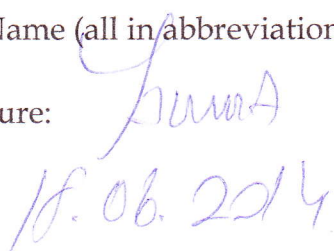 Name (all in abbreviation
ure:
18.06.2014